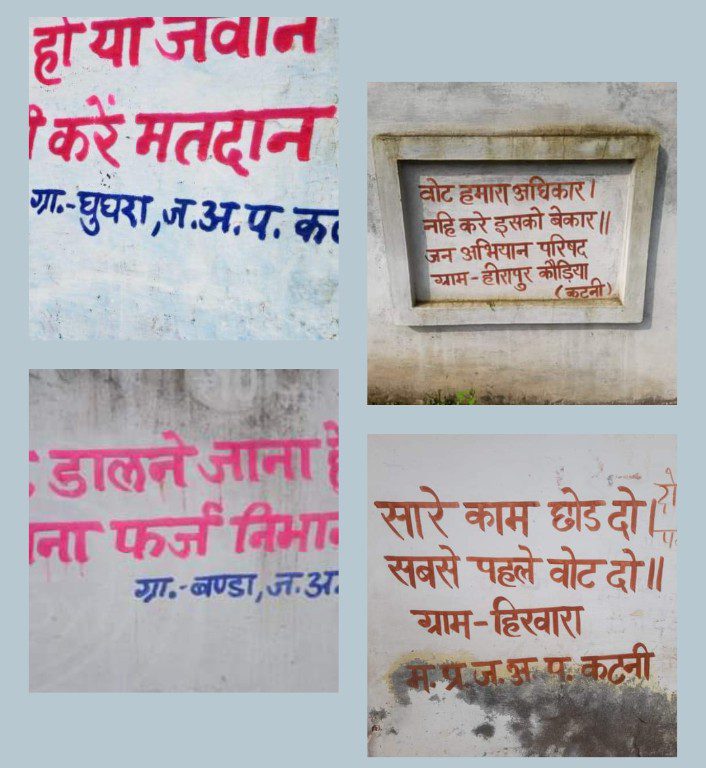 हो या जवान
करें मतदान
ग्रा.-घुघरा, ज.अ.प.
वोट हमारा अधिकार।
नहि करे इसको बेकार॥
जन अभियान परिषद
ग्राम-हीरापुर कौड़िया
(कटनी)
डालने जाना
फर्ज
ग्रा.-बण्डा, ज.अ.
सारे काम छोड दो।
सबसे पहले वोट दो॥
ग्राम-हिरवारा
म.प्र.ज.अ.प. कटनी